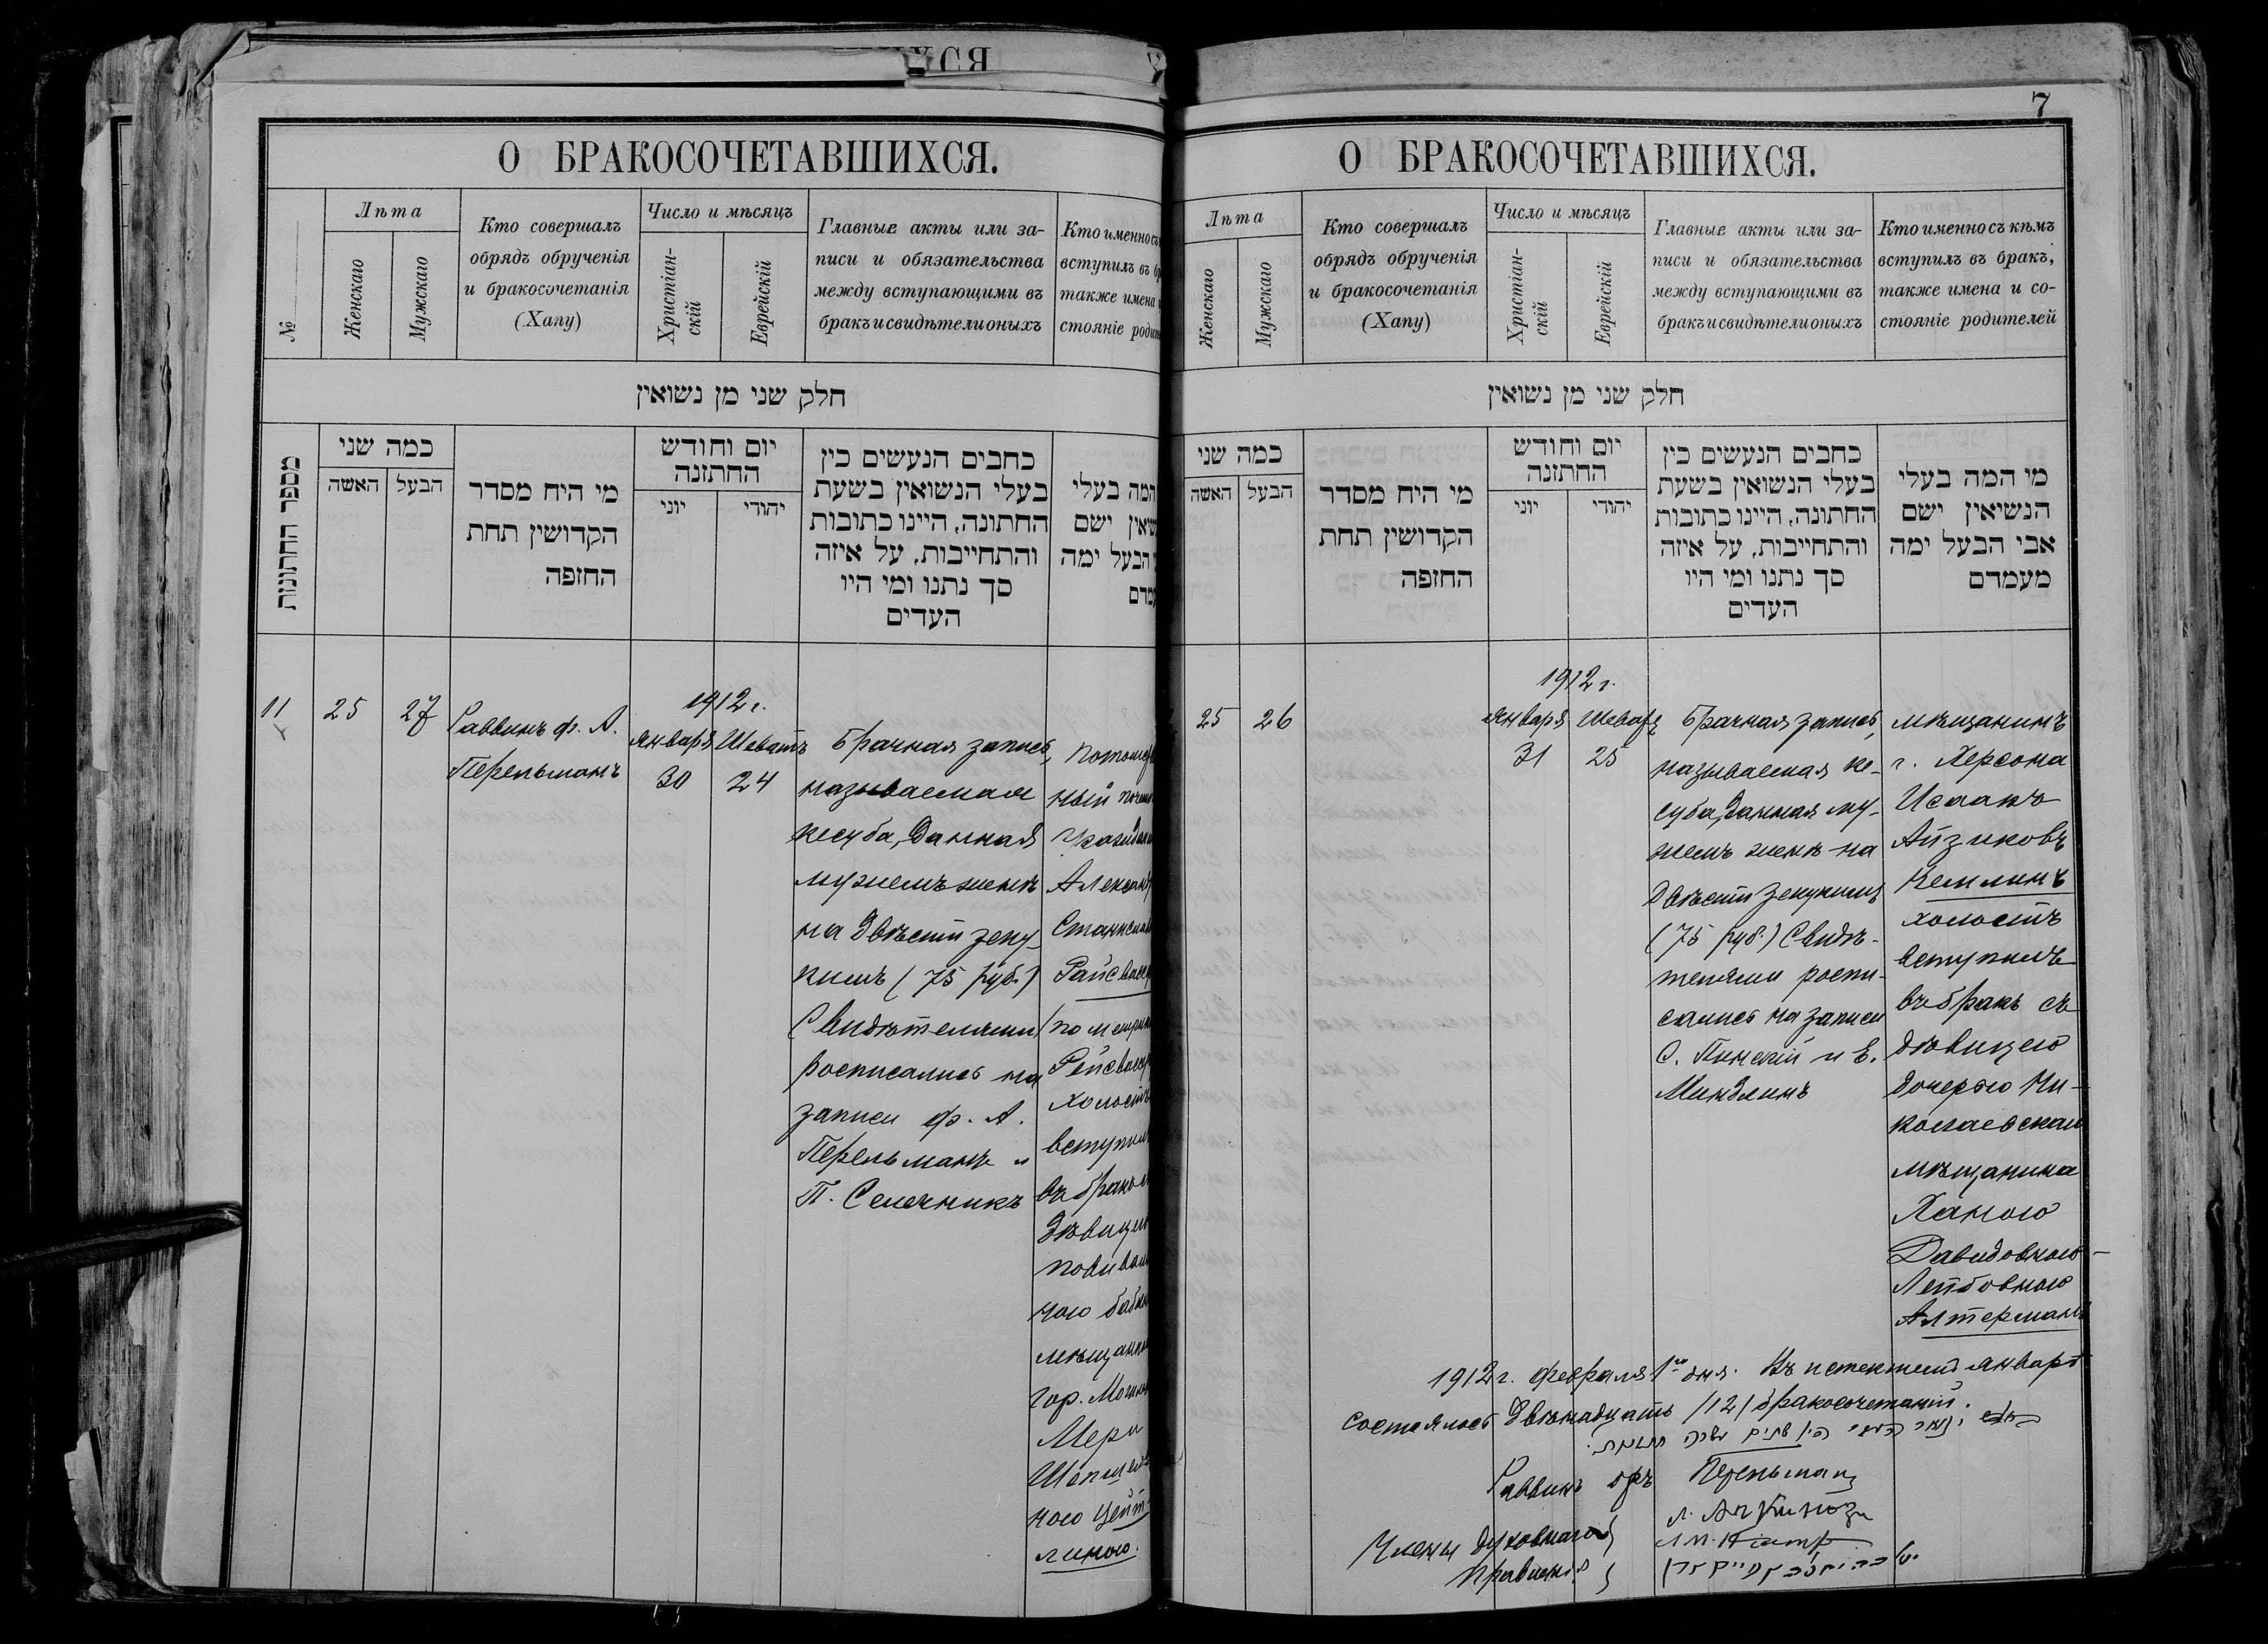 7
О БРАКОСОЧЕТАВШИХСЯ.
№
Лѣта
Женскаго
Мужскаго
Кто совершалъ
обрядъ обрученія
и бракосочетанія
(Хапу)
Число и мѣсяцъ
Христіан-
скій
Еврейскій
Главные акты или за-
писи и обязательства
между вступающими въ
бракъ и свидѣтели оныхъ
Кто именно съ
вступилъ въ
также имена
стояніе
חלק שני מן נשואין
מספר החתונות
כמה שני
האשה
הבעל
מי היח מסדר
הקדושין תחת
החזפה
יום וחודש
החתזנה
יוני
יהודי
כחבים הנעשים כין
בעלי הנשואין בשעת
החתונה, היינו כתובות
והתחייבות, על איזה
סך נתנו ומי היו
העדים
המה בעלי
ישם
הבעל ימה
11
25
27
Раввинъ ф. А.
Перельманъ
1912 г.
Января
30
Шеватъ
24
Брачная запись,
называемая
кесуба, данная
мужемъ женѣ
на двѣсти зеку-
кимъ (75 руб.)
Свидѣтелями
росписались на
записи ф. А.
Перельманъ и
П. Селечникъ
холостъ
вступилъ
въ бракъ
гор.
Мери
О БРАКОСОЧЕТАВШИХСЯ.
Лѣта
Женскаго
Мужскаго
Кто совершалъ
обрядъ обрученія
и бракосочетанія
(Хапу)
Число и мѣсяцъ
Христіан-
скій
Еврейскій
Главные акты или за-
писи и обязательства
между вступающими въ
бракъ и свидѣтели оныхъ
Кто именно съ кѣмъ
вступилъ въ бракъ,
также имена и со-
стояніе родителей
חלק שני מן נשואין
כמה שני
האשה
הבעל
מי היח מסדר
הקדושין תחת
החזפה
יום וחודש
החתזנה
יוני
יהודי
כחבים הנעשים כין
בעלי הנשואין בשעת
החתונה, היינו כתובות
והתחייבות, על איזה
סך נתנו ומי היו
העדים
מי המה בעלי
הנשיאין ישם
אבי הבעל ימה
מעמדם
25
26
1912 г.
Января
31
Шевата
25
Брачная запись,
называемая ке-
суба, данная му-
жемъ женѣ на
двѣсти зекукимъ
(75 руб.) Свидѣ-
телями роспи-
сались на записи
С. Пинскій и Е.
Миндлинъ
мѣщанинъ
г. Херсона
Исаакъ
Айзиковъ
Кемлинъ
холостъ
вступилъ
въ бракъ съ
дѣвицею
дочерью Ни-
колаевскаго
мѣщанина
Ханою
Давидовною-
Лейбовною
Алтерманъ
1912 г. Февраля 1го дня. Въ истекшемъ январѣ
состоялось двѣнадцать /12/ бракосочетаній.
Раввинъ фъ Перельманъ
Члены духовнаго
правленія